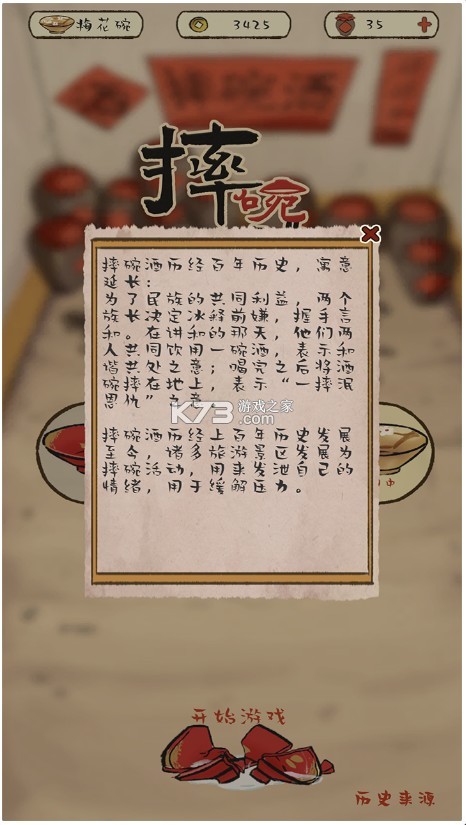 梅花碗
3425
35
摔碗酒
摔碗
摔碗酒历经百年历史，寓意
延长：
为了民族的共同利益，两个
族长决定冰释前嫌，握手言
和。在讲和的那天，他们两
人共同饮用一碗酒，表示和
谐共处之意；喝完之后将
碗摔在地上，表示“一摔泯
恩仇”之意
K73 游戏之家
.com
摔碗酒，历经百年历史发展
至今，诸多旅游景区发展为
摔碗活动，用来发泄自己的
情绪，用于缓解压力。
开始游戏
历史来源